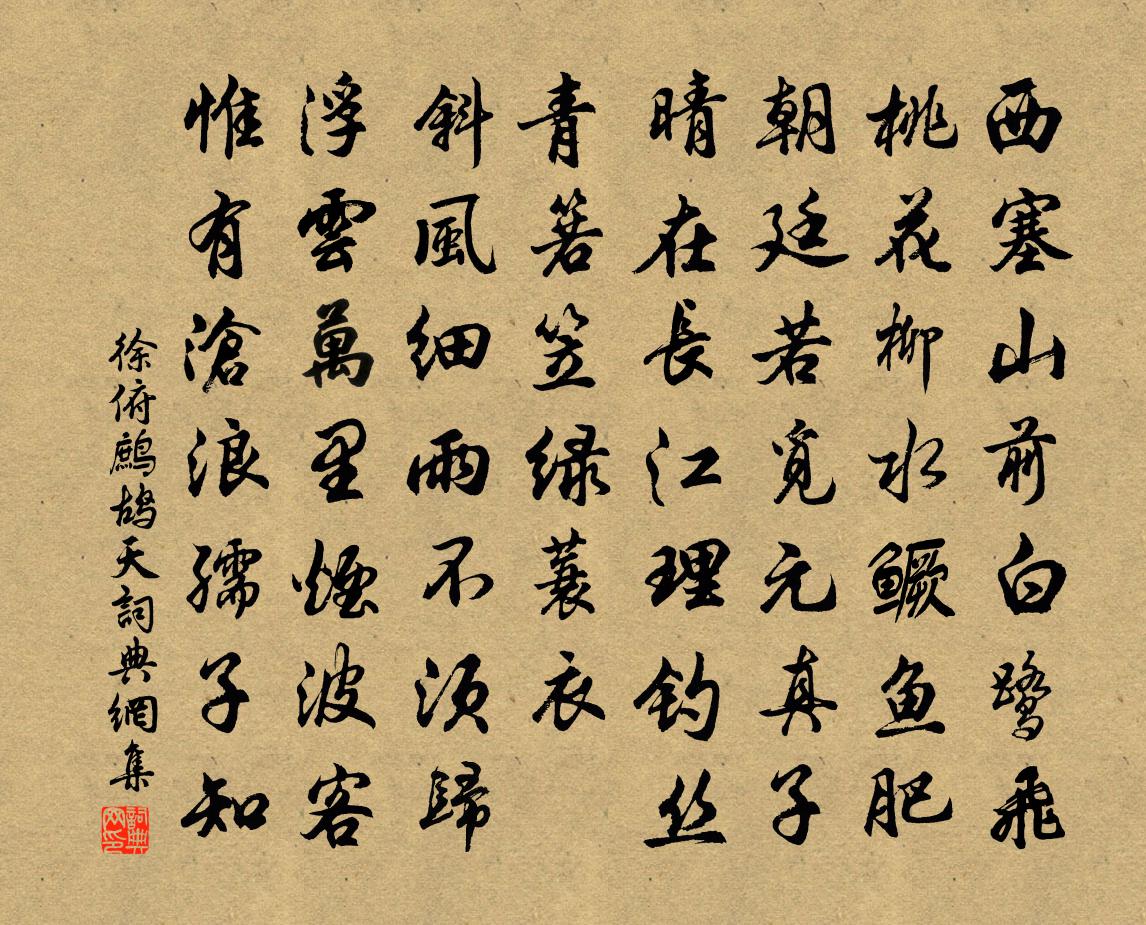 西塞山前白鷺飛
桃花柳水鳜鱼肥
朝廷若覓元真子
晴在長江理钓丝
青箬笠绿蓑衣
斜風细雨不須歸
浮雲萬里煙波客
惟有滄浪孺子知
徐俯鷓鴣天詞典網集
詞典网印